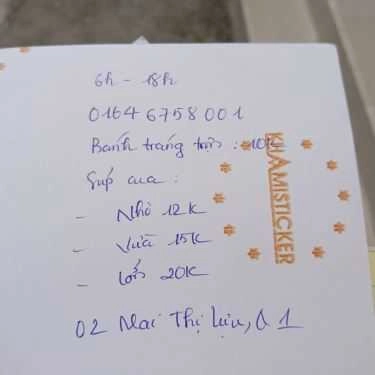 6h - 18h
0164 6758 001
Bánh tráng trộn : 10K
Súp cua :
- Nhỏ 12K
- Vừa 15K
- Lớn 20K
02 Mai Thị Lựu, Q 1
KHAMISTICKER